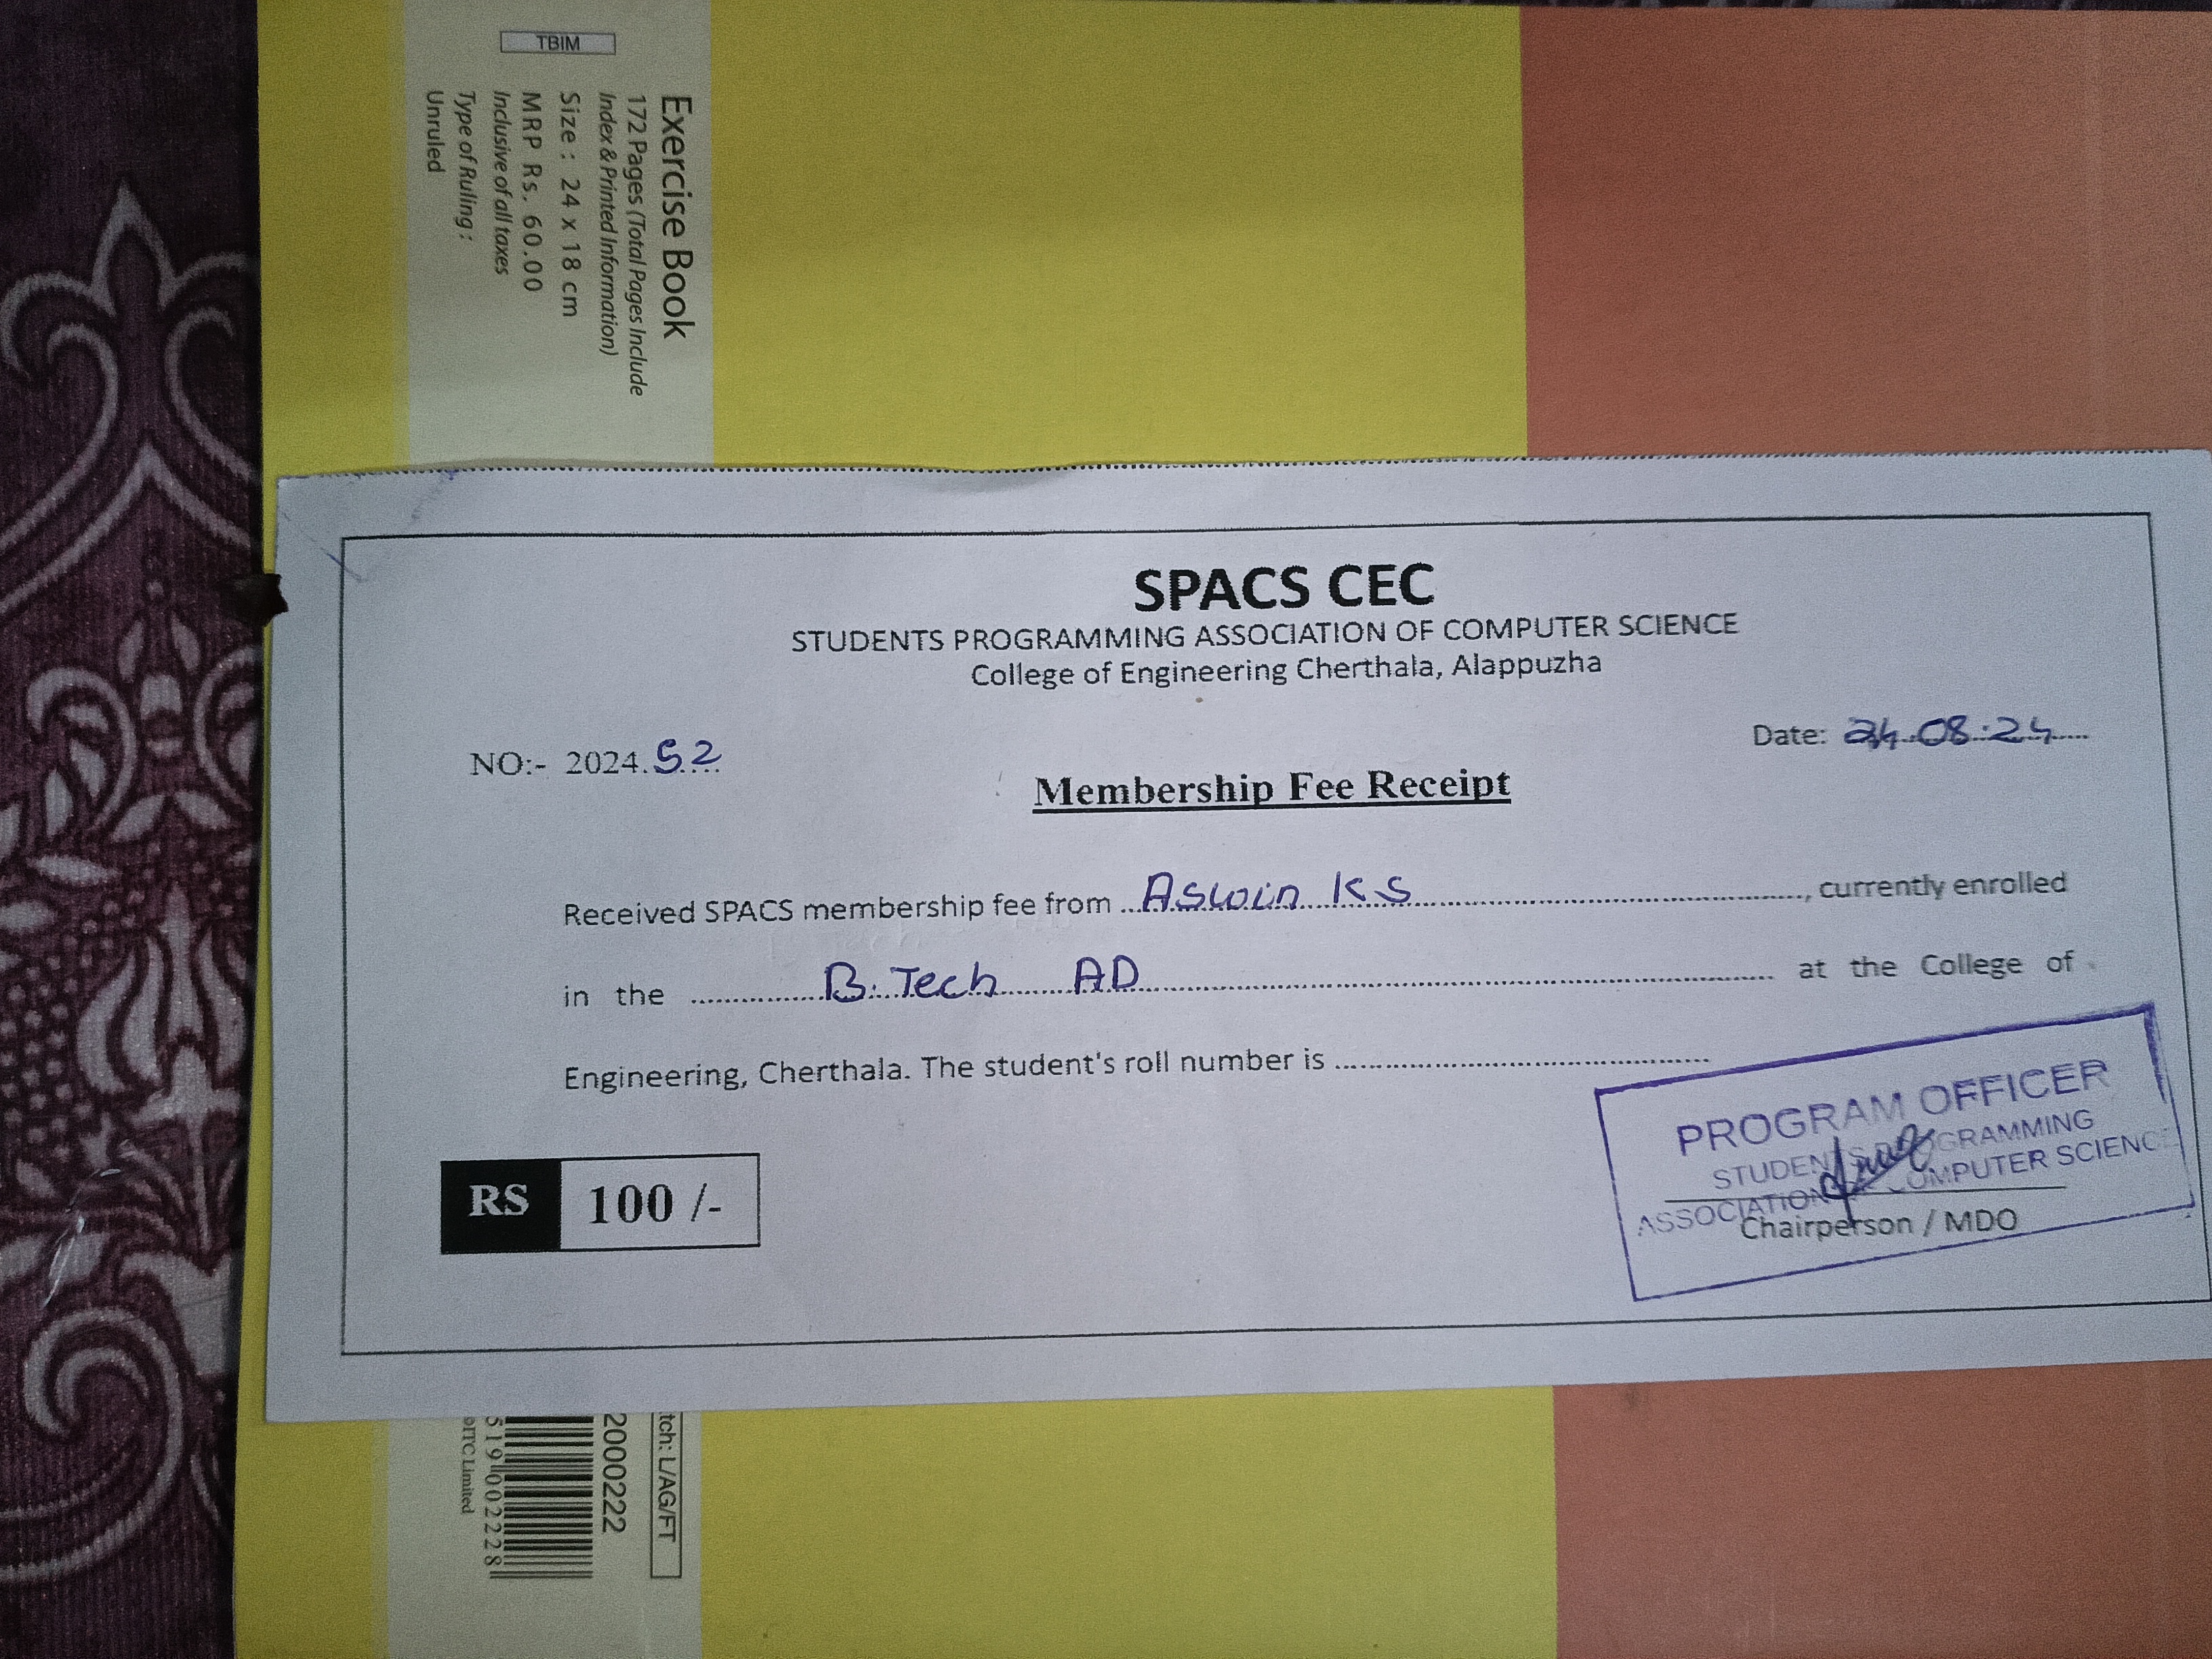 TBIM
Exercise Book
172 Pages (Total Pages Include
Index & Printed Information)
Size : 24 x 18 cm
MRP Rs. 60.00
Inclusive of all taxes
Type of Ruling :
Unruled
SPACS CEC
STUDENTS PROGRAMMING ASSOCIATION OF COMPUTER SCIENCE
College of Engineering Cherthala, Alappuzha
NO:- 2024.52
Date: 24.08.24
Membership Fee Receipt
Received SPACS membership fee from Aswin K S, currently enrolled
in the B.Tech AD at the College of
Engineering, Cherthala. The student's roll number is
RS 100 /-
PROGRAM OFFICER
STUDENTS PROGRAMMING
ASSOCIATION OF COMPUTER SCIENCE
Chairperson / MDO
tch: L/AG/FT
2000222
519 002228
ITC Limited